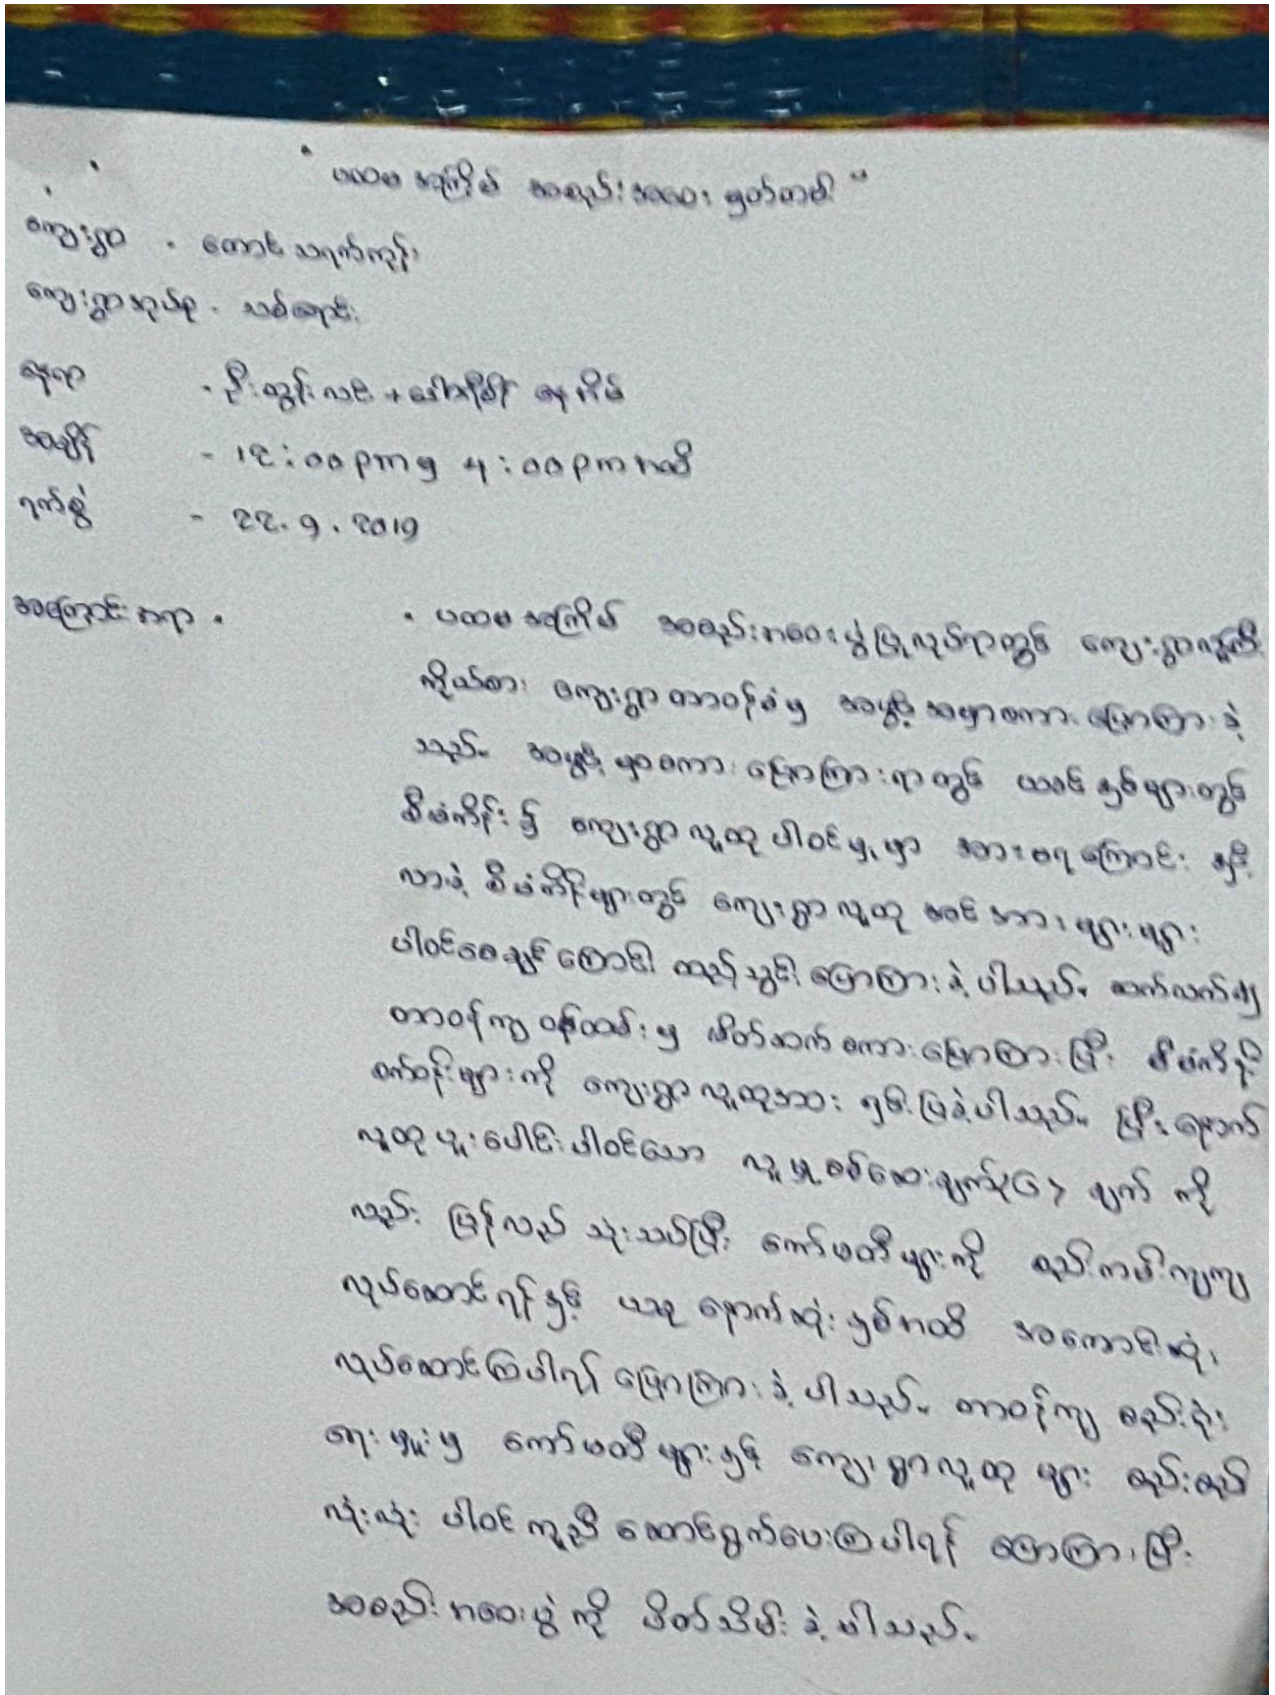 " ပထမ အကြိမ် အစည်းအဝေး မှတ်တမ်း "
ကျေးရွာ - တောင်သရက်ကုန်း
ကျေးရွာအုပ်စု - သစ်ရောင်း
နေရာ - ဦးထွန်းလင်း + ဒေါ် နေအိမ်
အချိန် - 12:00pm မှ 4:00pm အထိ
ရက်စွဲ - 22.9.2019
အကြောင်းအရာ - - ပထမ အကြိမ် အစည်းအဝေးပွဲပြုလုပ်ရာတွင် ကျေးရွာလူကြီး
ကိုယ်စား ကျေးရွာတာဝန်ခံမှ အဖွင့်အမှာစကား ပြောကြားခဲ့
သည်။ အဖွင့်မှာစကား ပြောကြားရာတွင် ယခင်နှစ်များတွင်
စီမံကိန်း၌ ကျေးရွာလူထု ပါဝင်မှုမှာ အားရကြောင်း နှင့်
လာမဲ့ စီမံကိန်းများတွင် ကျေးရွာလူထု အင်အားများများ
ပါဝင်စေချင်ကြောင်း ထည့်သွင်း ပြောကြားခဲ့ပါသည်။ ဆက်လက်၍
တာဝန်ကျ ဝန်ထမ်းမှ မိတ်ဆက်စကားပြောကြားပြီး စီမံကိန်း
စက်ဝန်းများကို ကျေးရွာလူထုအား ရှင်းပြခဲ့ပါသည်။ ပြီးနောက်
လူထုပူးပေါင်းပါဝင်သော လူမှုစစ်ဆေးချက်(၆) ချက် ကို
လည်း ပြန်လည် သုံးသပ်ပြီး ကော်မတီများကို စည်းကမ်းကျကျ
လုပ်ဆောင်ရန်နှင့် ယခု နောက်ဆုံးနှစ်အထိ အကောင်းဆုံး
လုပ်ဆောင်ကြပါရန် ပြောကြားခဲ့ပါသည်။ တာဝန်ကျ စည်းရုံး
ရေးမှူးမှ ကော်မတီများနှင့် ကျေးရွာလူထုများ စည်းစည်း
လုံးလုံး ပါဝင်ကူညီ ဆောင်ရွက်ပေးကြပါရန် ပြောကြားပြီး
အစည်းအဝေးပွဲကို ပိတ်သိမ်းခဲ့ပါသည်။